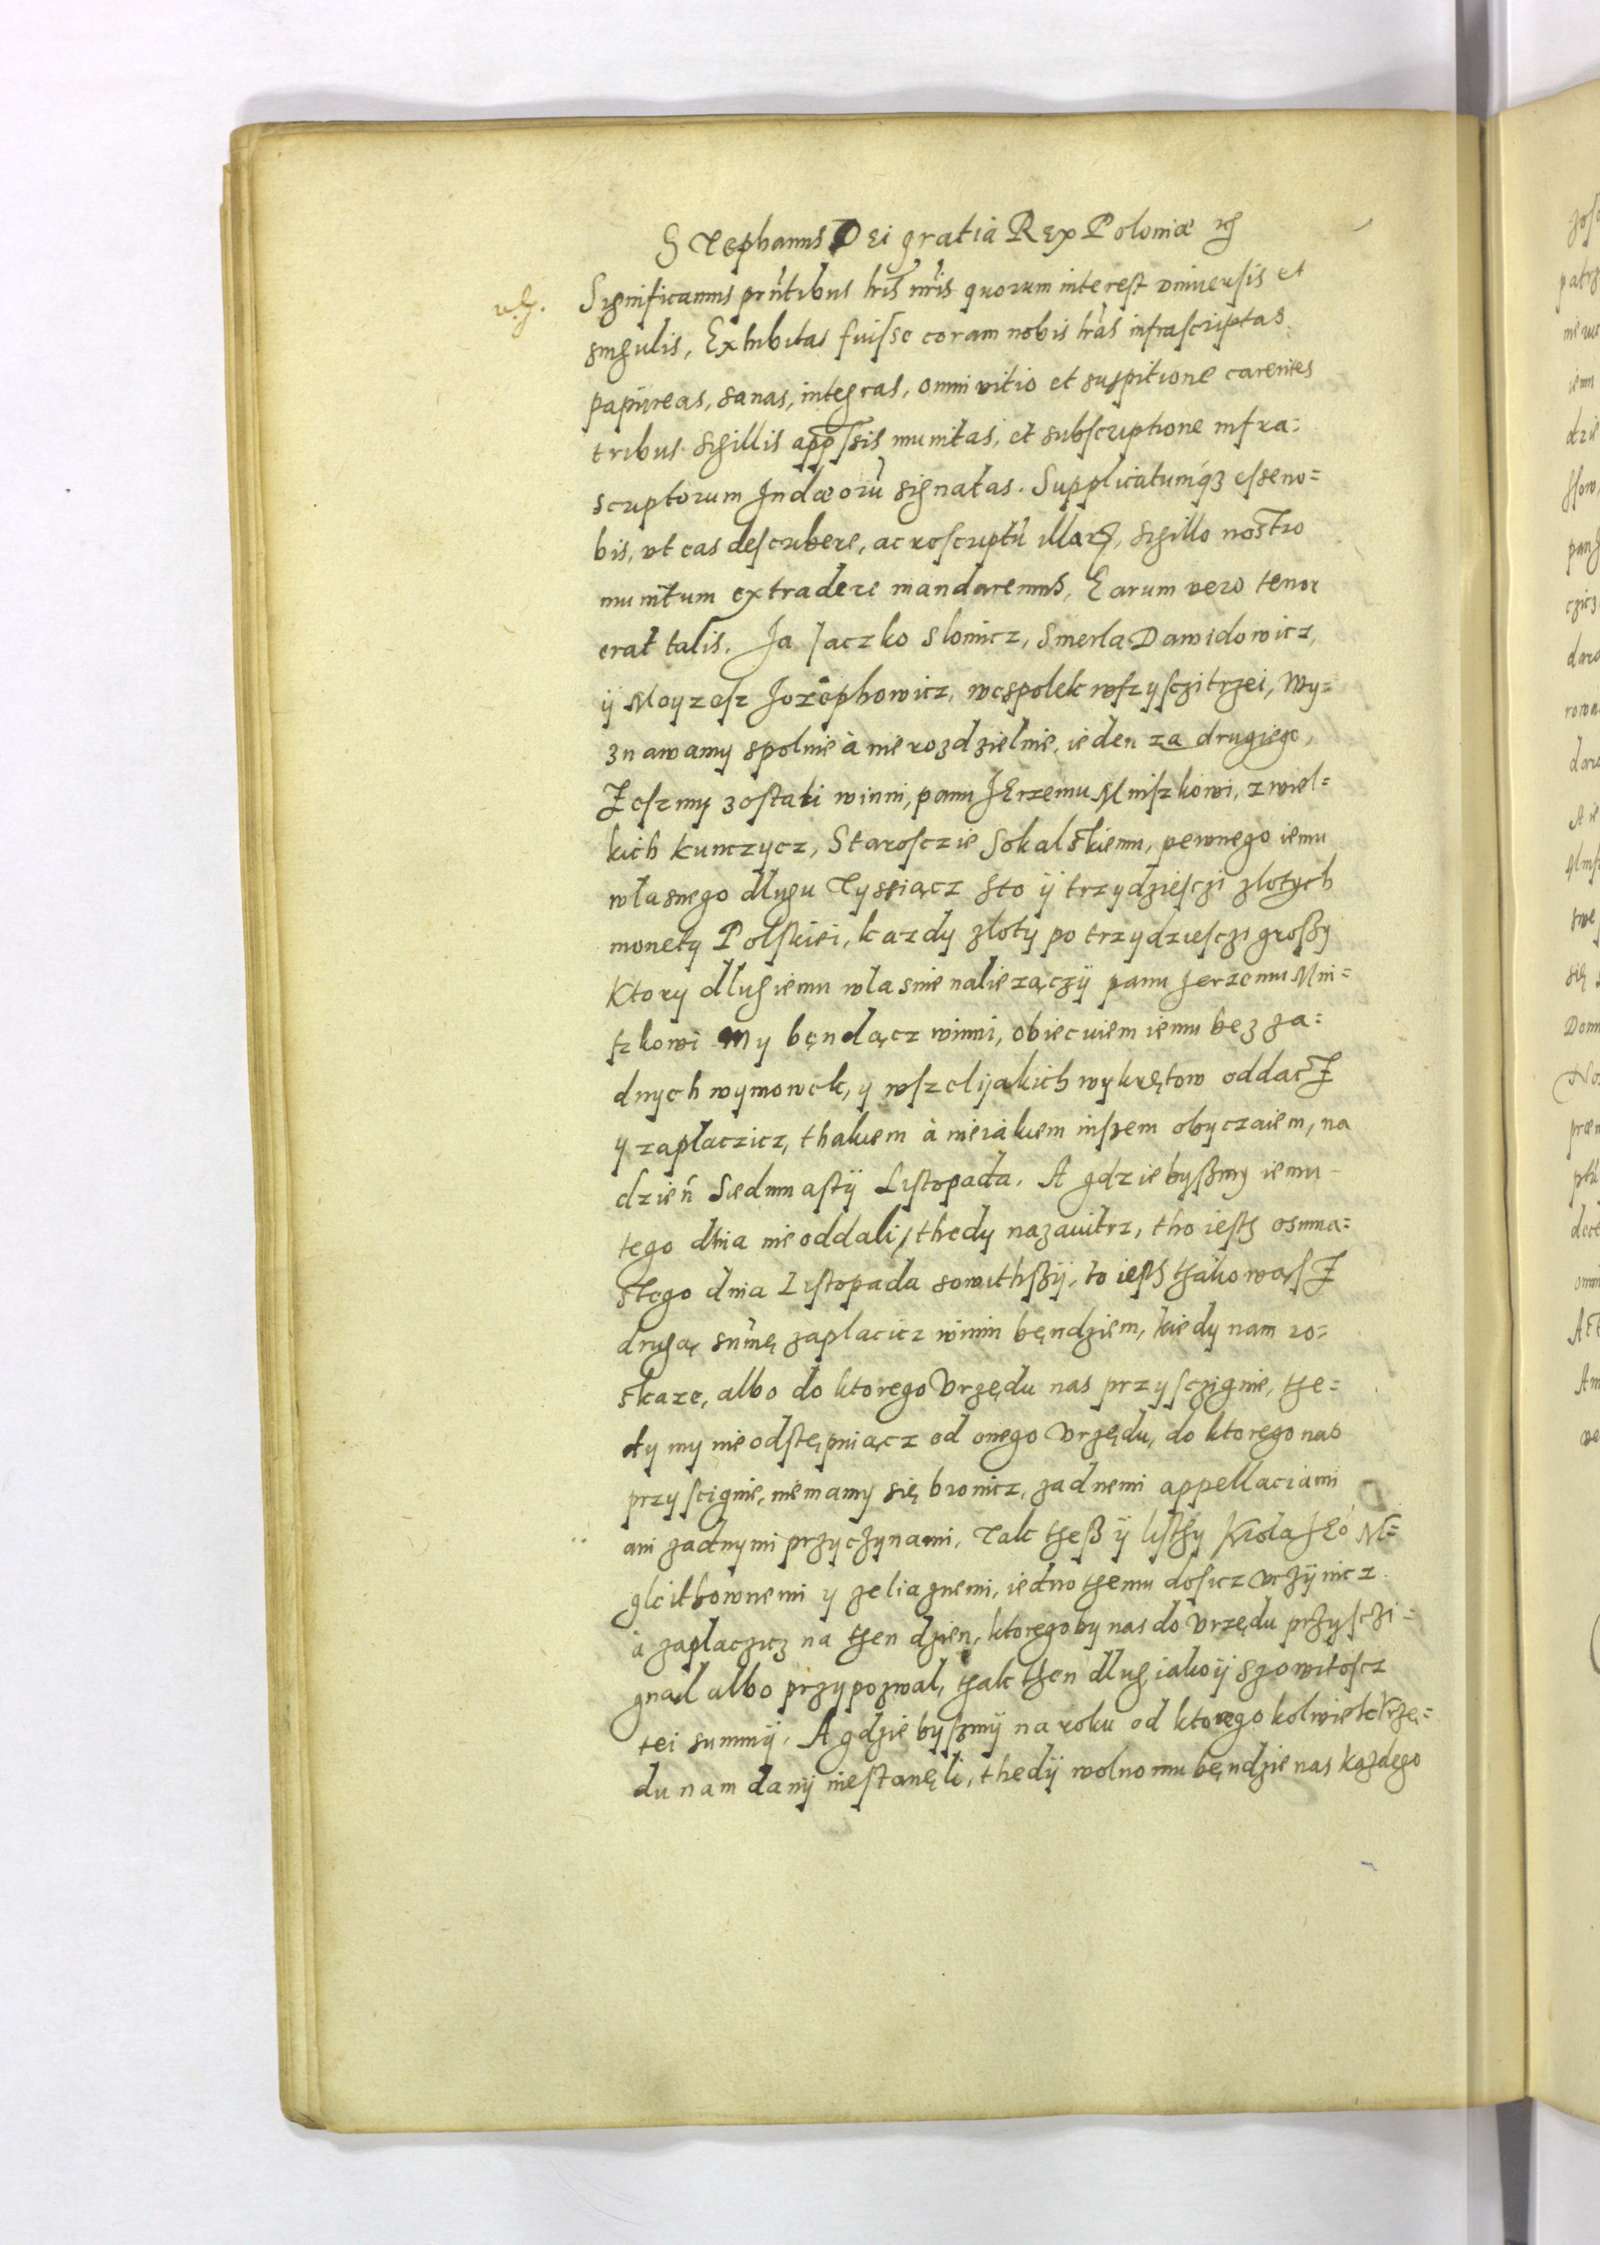 Stephanus Dei gratia Rex Poloniæ
Significamus prñtibus lr̃is nr̃is quorum interest vniuersis et
singulis, Exhibitas fuisse coram nobis lr̃as infrascriptas
papireas, sanas, integras, omni vitio et suspitione carentes
tribus sigillis app̃ssis munitas, et subscriptione infra=
scriptorum Judæorũ signatas. Supplicatumq́3 esse no=
bis, vt eas describere, ac rescriptũ illarꝝ, sigillo nostro
munitum extradere mandaremus, Earum vero tenor
erat talis. Ja Jaczko Slomicz, Smerla Dawidowicz,
ÿ Moyzesz Jozephowicz, wespolek wszysczi trzei, Wy=
znawamy spolnie à nierozdzielnie, ieden za drugiego,
Zeszmy zostali winni, panu JErzemu Mniszkowi, z wiel=
kich Kunczycz, Starosczie Sokalskiemu, pewnego iemu
własnego długu Tysiącz sto ÿ trzydziesczi złotych
monety Polskiei, kazdy złoty po trzydziesczi groszy
Ktory dług iemu własnie nalieżączÿ panu Jerzemu Mni=
szkowi My bęndącz winni, obiecuiem iemu bez za=
dnych wymowek, y wszelijakich wykrętow oddacz
y zapłaczicz, thakiem à nie iakiem inszem obyczaiem, na
dzień Siedmnastÿ Listopada. A gdziebyszmy iemu
tego dnia nie oddali, thedy nazauitrz, tho iesth osmna=
stego dnia Listopada sowithszÿ, to iesth thakowasz
drugą sum̃ę zaplacicz winni będziem, kiedy nam ro=
skaze, albo do ktorego Vrzędu nas przysczignie, the=
dy my nie odstępuiącz od onego Vrzędu, do ktorego nas
przyscignie, nie mamy się bronicz, zadnemi appellaciami
ani zadnymi przyczynami, Tak thesz ÿ listhy Krola JEº M=
gleithownemi y zeliaznemi, iedno themu dosicz vczÿnicz
à zaplaczicz na then dzien, ktoregoby nas do Vrzędu przysczi=
gnal albo przypozwal, thak then dlug, iako ÿ szowitoscz
tei summÿ. A gdzie byszmÿ na roku od ktorego kolwiek Vrzę=
du nam danÿ niestanęli, thedÿ wolno mu bęndzie nas kazdego